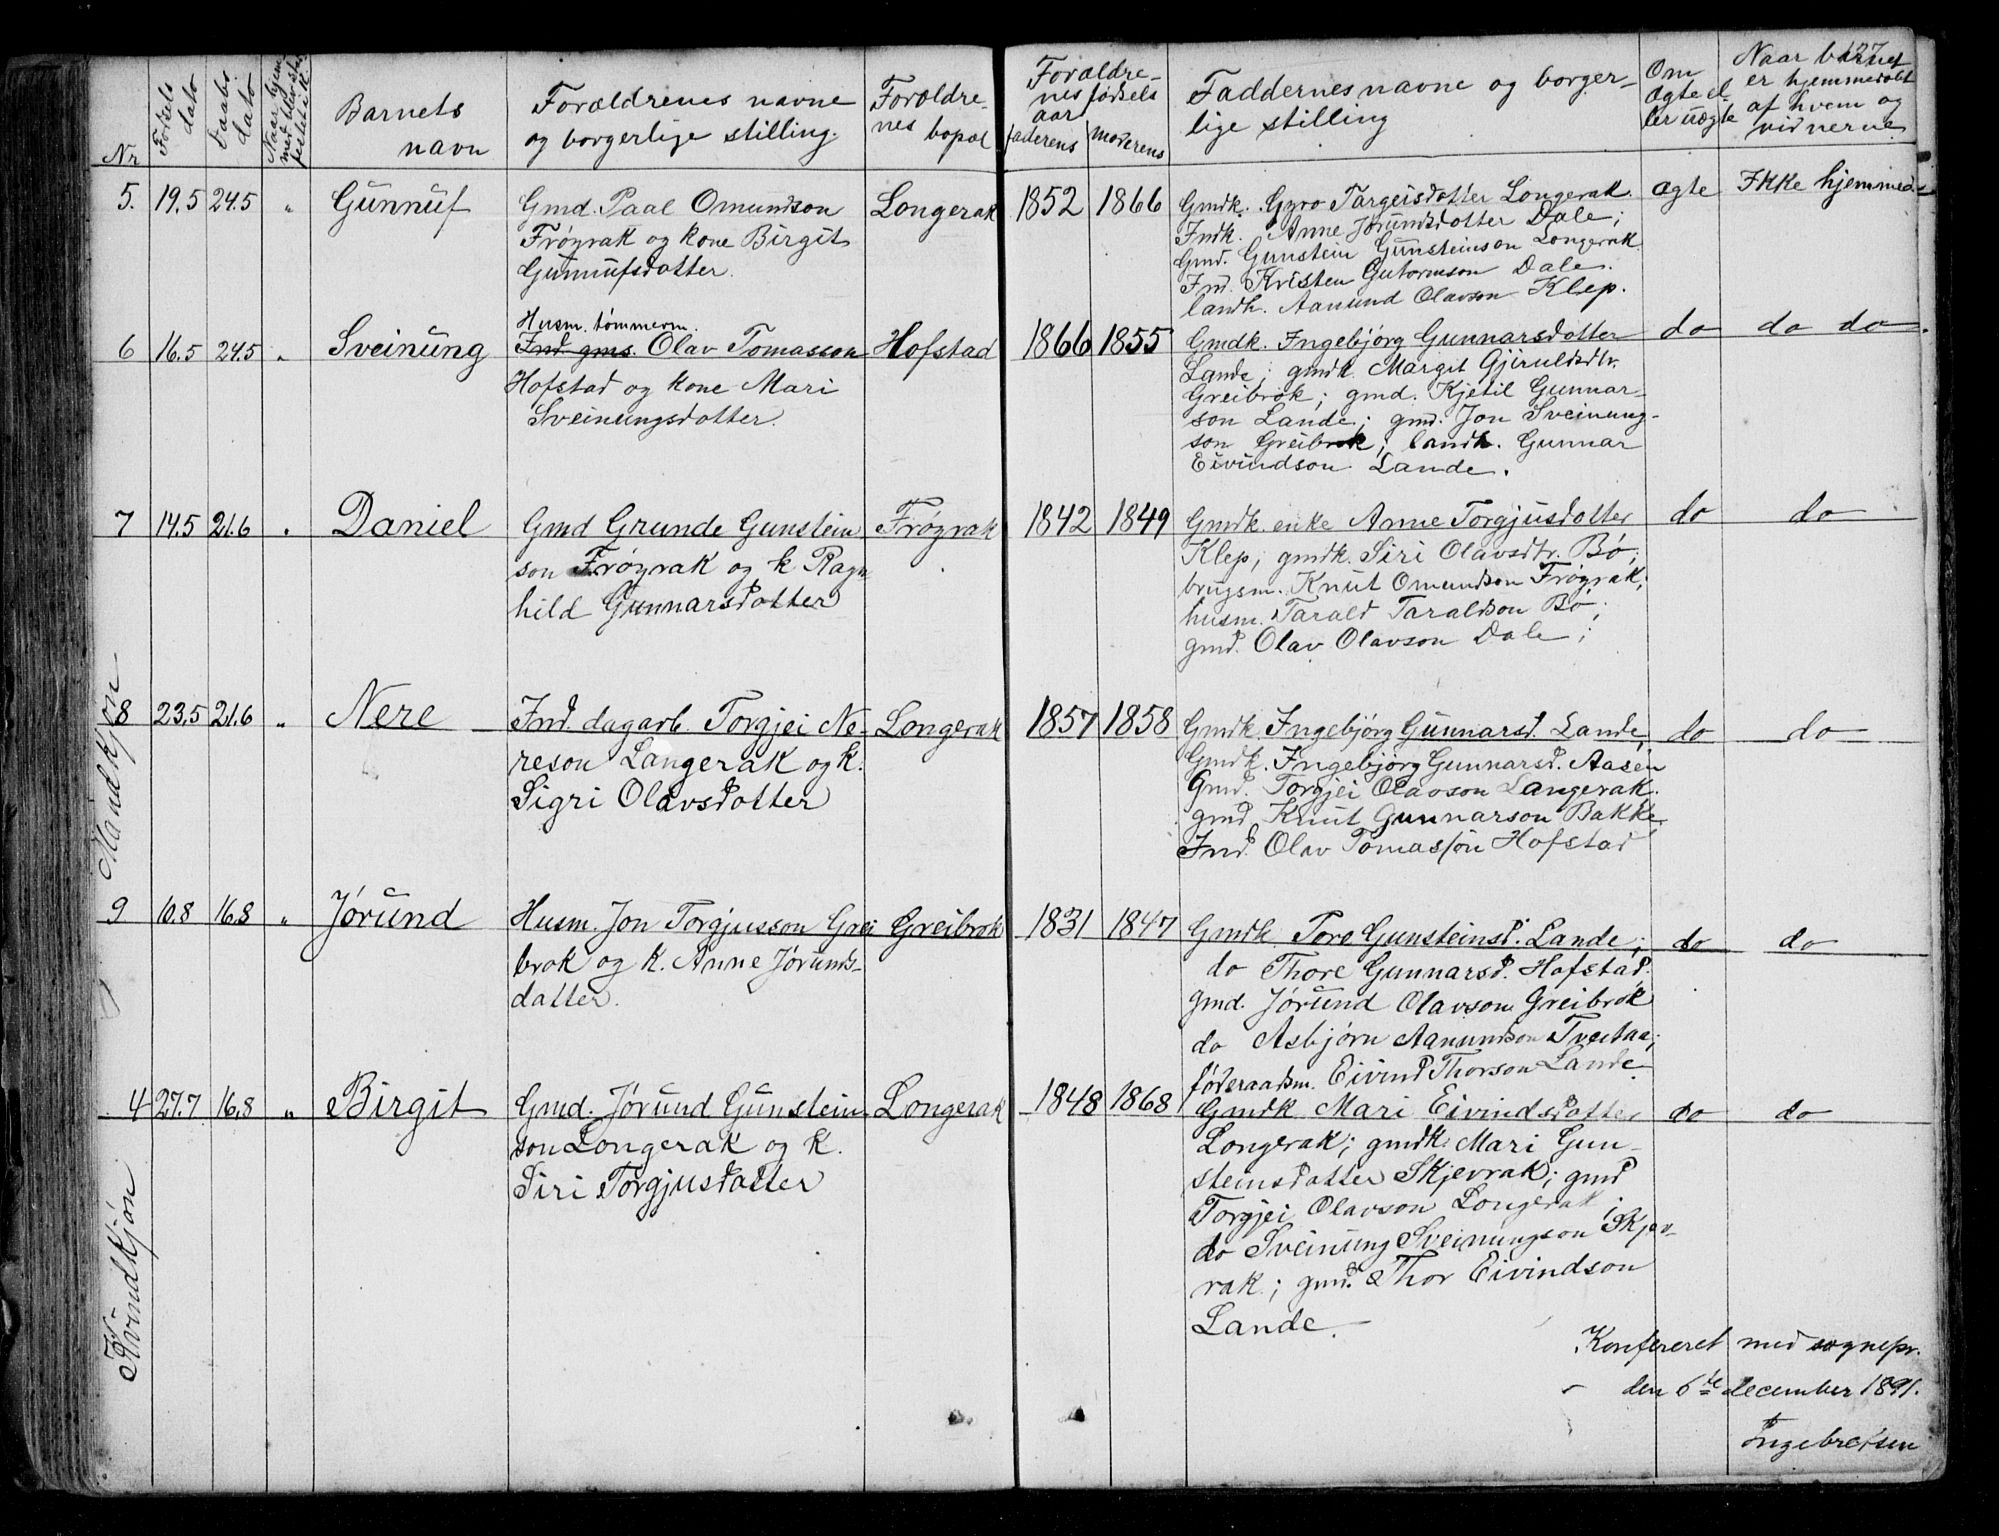 127
Nr
Fødsels dato
Daabs dato
Barnets navn
Forældrenes navne og borgerlige stilling.
Forældrenes bopæl
Forældrenes fødselsaar
faderens
moderens
Faddernes navne og borgerlige stilling
Om ægte eller uægte
Naar barnet er hjemmedøbt af hvem og vidnerne
Mandkjøn
5. 19.5 24.5 " Gunnuf
Gmd. Paal Omundson
Frøyrak og kone Birgit
Gunnufsdatter.
Longerak
1852 1866
Gmdk. Gyro Targeisdotter Longerak.
Indk. Anne Jørundsdotter Dale;
Gmd. Gunstein Gunsteinson Longerak
Ind. Kristen Gutormson Dale.
landh. Aanund Olavson Klep.
ægte Ikke hjemmed.
6 16.5 24.5 " Sveinung
Husm. tømmerm.
Ind gms. Olav Tomasson
Hofstad og kone Mari
Sveinungsdotter.
Hofstad
1866 1855
Gmdk. Ingebjørg Gunnarsdotter
Lande; gmdk. Margit Gjeruldsdtr.
Greibrok; gmd. Kjetil Gunnar-
son Lande; gmd. Jon Sveinung-
son Greibrok; landh. Gunnar
Eivindson Lande.
do do do.
7 14.5 21.6 " Daniel
Gmd Grunde Gunstein
son Frøyrak og k Ragn
hild Gunnarsdotter
Frøyrak
1842 1849
Gmdk. enke Anne Torgjusdotter
Klep; gmdk. Siri Olavsdtr. Bø;
brugsm. Knut Omundson Frøyrak;
husm. Tarald Taraldson Bø;
gmd. Olav Olavson Dale;
do do
8 23.5 21.6 " Nere
Ind. dagarb. Torgjei Ne-
reson Langerak og k.
Sigri Olavsdotter
Longerak
1857 1858
Gmdk. Ingebjørg Gunnarsd. Lande,
Gmdk. Ingebjørg Gunnarsd. Aasen
Gmd. Torgjei Olavson Langerak.
gmd Knut Gunnarson Bakke.
Ind. Olav Tomasson Hofstad
do do
9 10.8 16.8 " Jørund
Husm. Jon Torgjusson Grei
brok og k. Anne Jørunds-
datter.
Greibrok
1831 1847
Gmdk Toro Gunsteinsd. Lande;
do Thore Gunnarsd. Hofstad.
gmd. Jørund Olavson Greibrok
do Asbjørn Aanundson Tveitaa;
føderaadsm. Eivind Thorson Lande
do do
Kvindkjøn
4 27.7 16.8 " Birgit
Gmd. Jørund Gunstein
son Longerak og k.
Siri Torgjusdatter
Longerak
1848 1868
Gmdk Mari Eivindsdotter
Longerak; gmdk. Mari Gun-
steinsdatter Skjevrak; gmd
Torgjei Olavson Longerak;
do Sveinung Sveinungson Skjev-
rak; gmd. Thor Eivindson
Lande.
do do
Konfereret med sognepr.
den 6te december 1891.
Ingebretsen